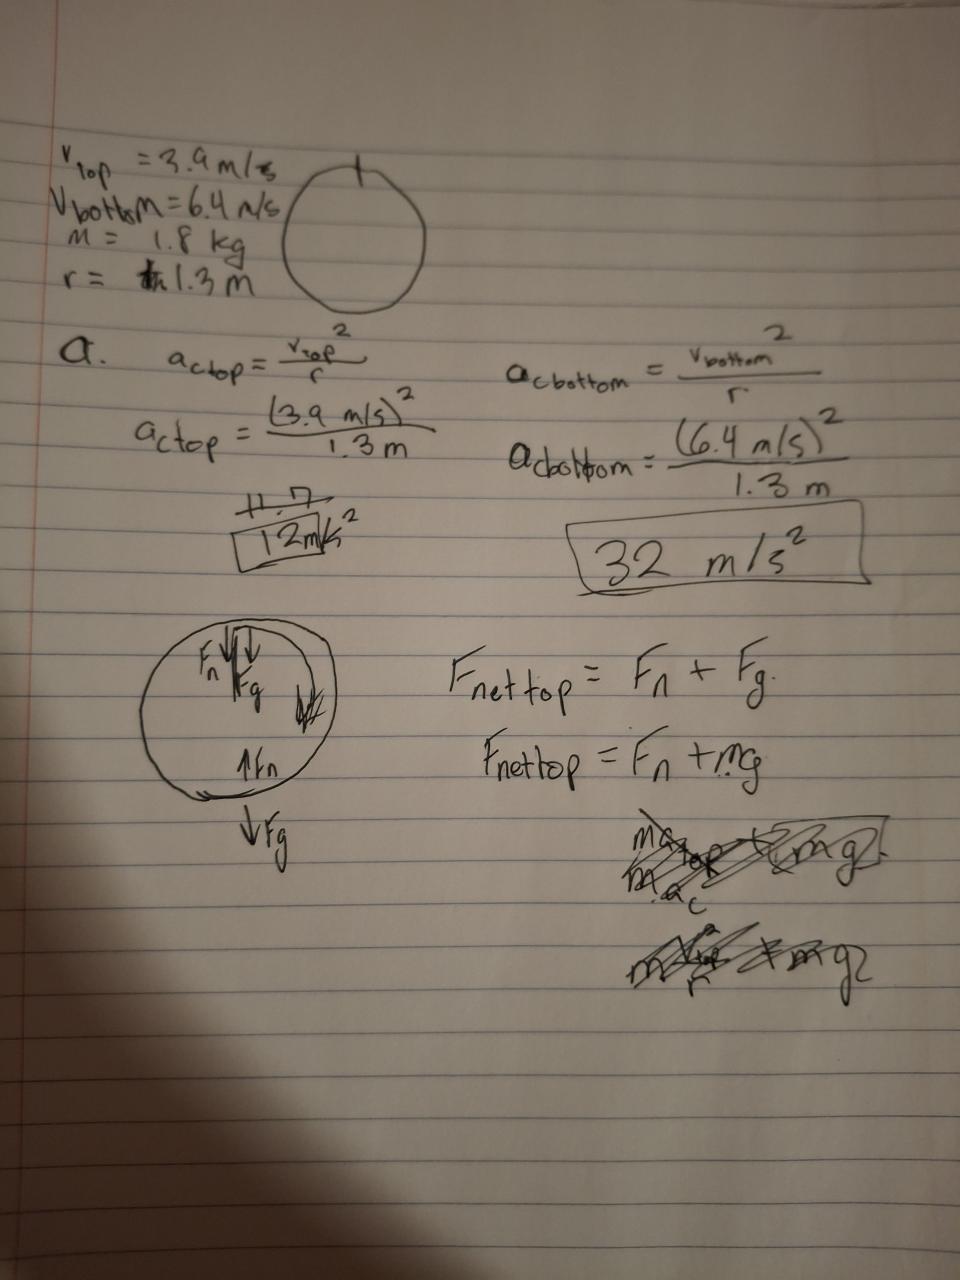 v_top = 3.9 m/s
V_bottom = 6.4 m/s
m = 1.8 kg
r = 1.3 m
a.
a_ctop = v_top² / r
a_ctop = (3.9 m/s)² / 1.3 m
11.7
12 m/s²
a_cbottom = v_bottom² / r
a_cbottom = (6.4 m/s)² / 1.3 m
32 m/s²
Fn Fg
Fn
Fg
F_net top = Fn + Fg.
F_net top = Fn + mg
ma_top + mg
ma_c
m v_top² / r + mg